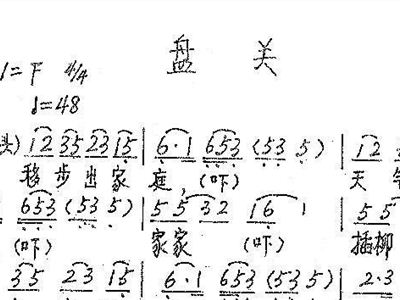 盘关
1=F 4/4
♩=48
头) 12 35 23 15 | 6·1 653 (53 5) | 12
移步出家庭,(吓) 天
653 (53 5) | 55 32 16 1 | 55
(吓) 家家 (吓) 插柳
35 23 15 | 6·1 653 (53 5) | 2·3